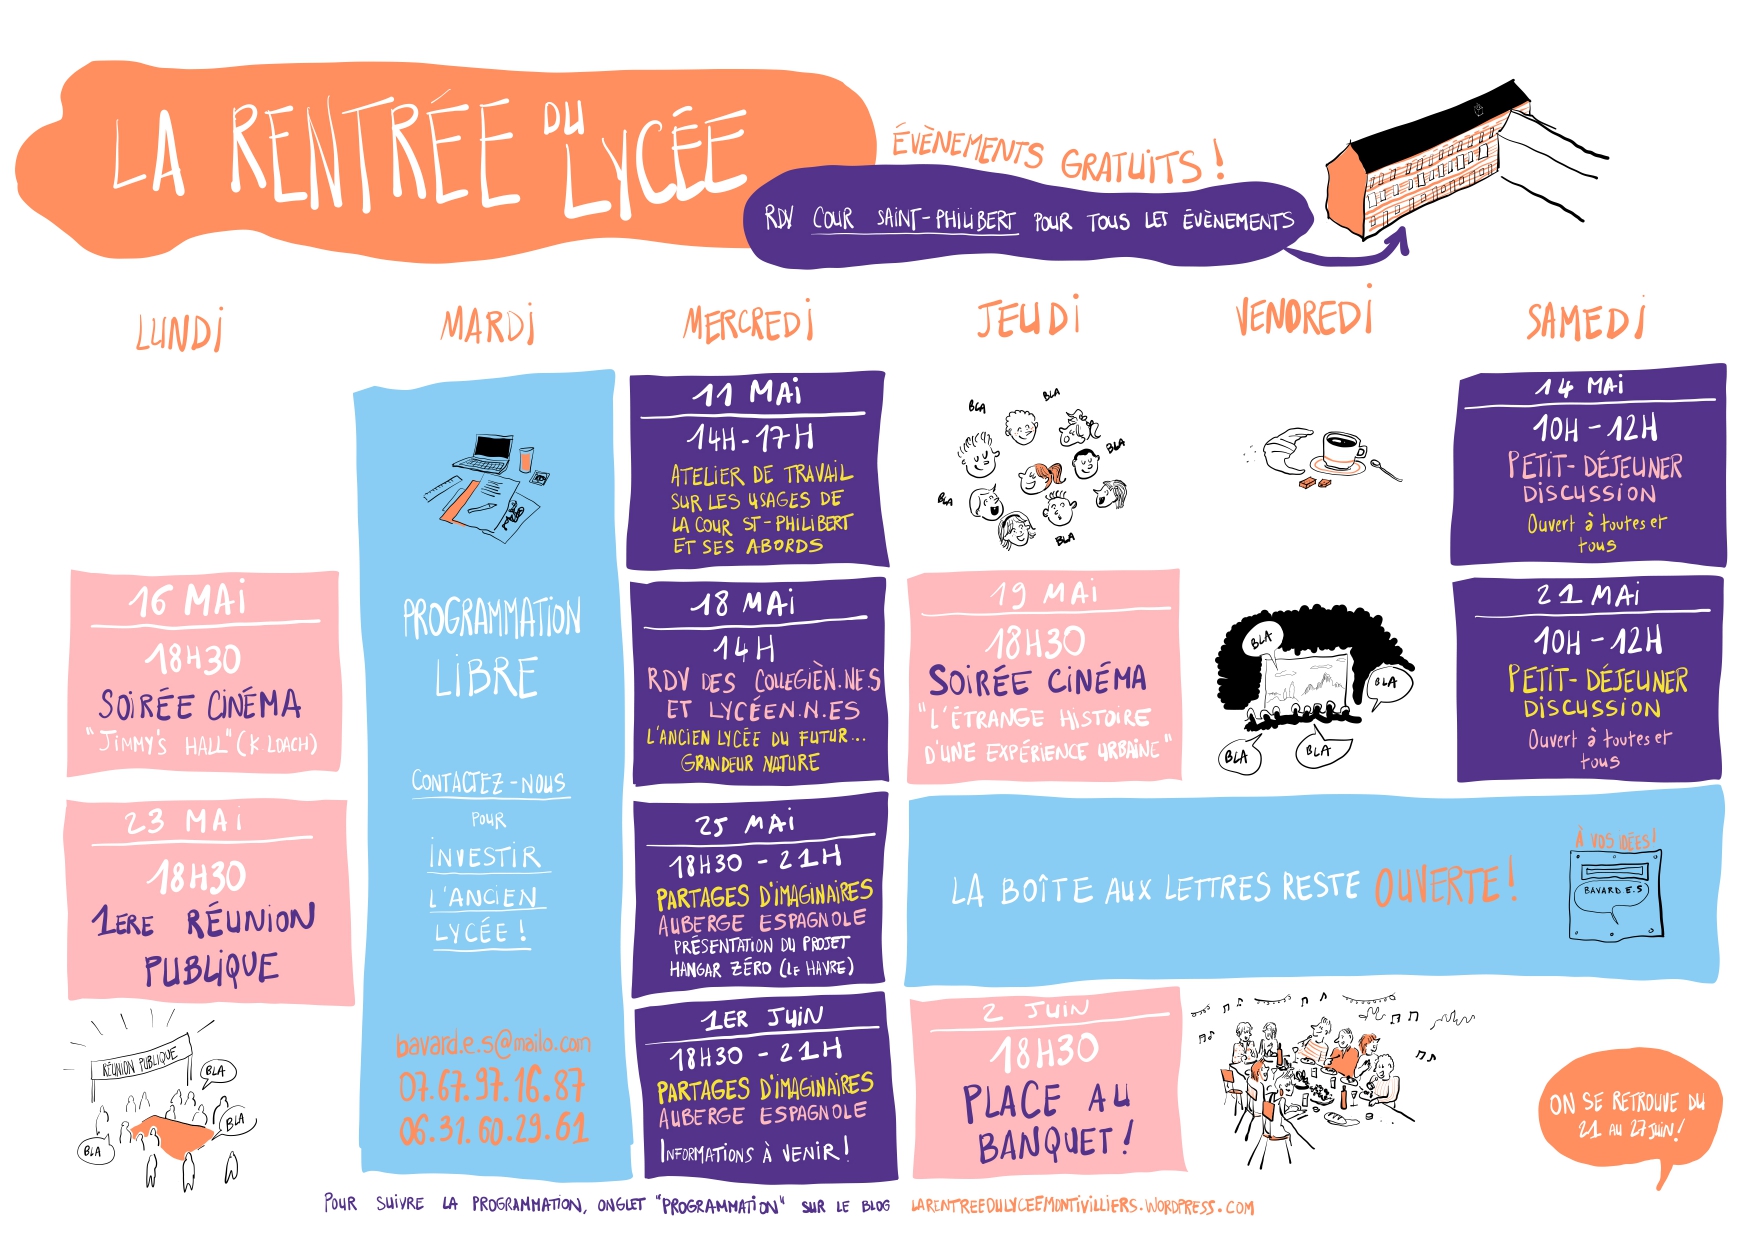 LA RENTRÉE DU LYCÉE
ÉVÈNEMENTS GRATUITS !
RDV COUR SAINT-PHILIBERT POUR TOUS LES ÉVÈNEMENTS
LUNDI
MARDI
MERCREDI
JEUDI
VENDREDI
SAMEDI
11 MAI
14H-17H
ATELIER DE TRAVAIL
SUR LES USAGES DE
LA COUR ST-PHILIBERT
ET SES ABORDS
BLA
BLA
BLA
BLA
BLA
14 MAI
10H-12H
PETIT-DÉJEUNER
DISCUSSION
Ouvert à toutes et
tous
16 MAI
18H30
SOIRÉE CINÉMA
"JIMMY'S HALL" (K LOACH)
PROGRAMMATION
LIBRE
CONTACTEZ-NOUS
POUR
INVESTIR
L'ANCIEN
LYCÉE !
bavard.e.s@mailo.com
07.67.97.16.87
06.31.60.29.61
18 MAI
14H
RDV DES COLLEGIÈN.NES
ET LYCÉEN.N.ES
L'ANCIEN LYCÉE DU FUTUR...
GRANDEUR NATURE
19 MAI
18H30
SOIRÉE CINÉMA
"L'ÉTRANGE HISTOIRE
D'UNE EXPÉRIENCE URBAINE"
BLA
BLA
BLA
BLA
21 MAI
10H-12H
PETIT-DÉJEUNER
DISCUSSION
Ouvert à toutes et
tous
23 MAI
18H30
1ERE RÉUNION
PUBLIQUE
25 MAI
18H30 - 21H
PARTAGES D'IMAGINAIRES
AUBERGE ESPAGNOLE
PRÉSENTATION DU PROJET
HANGAR ZÉRO (LE HAVRE)
LA BOÎTE AUX LETTRES RESTE OUVERTE !
À VOS IDÉES !
BAVARD.E.S
RÉUNION PUBLIQUE
BLA
BLA
BLA
1ER JUIN
18H30 - 21H
PARTAGES D'IMAGINAIRES
AUBERGE ESPAGNOLE
INFORMATIONS À VENIR !
2 JUIN
18H30
PLACE AU
BANQUET !
ON SE RETROUVE DU
21 AU 27 JUIN !
POUR SUIVRE LA PROGRAMMATION, ONGLET "PROGRAMMATION" SUR LE BLOG LARENTREEDULYCEEMONTIVILLIERS.WORDPRESS.COM